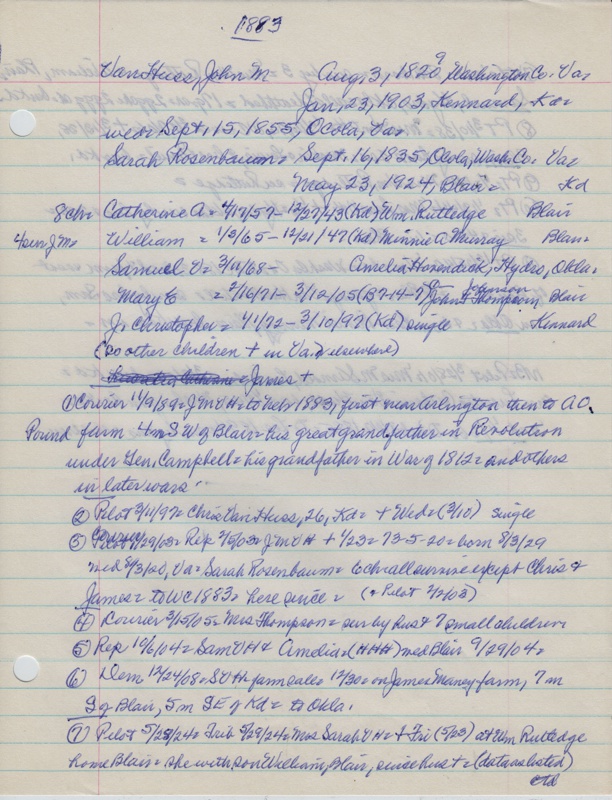 1883
Van Huss, John M Aug, 3, 1820, 9 Washington Co. Va=
Jan, 23, 1903, Kennard, Kd=
wed= Sept. 15, 1855, Ocola, Va=
Sarah Rosenbaum= Sept. 16, 1835, Ocola, Wash. Co. Va
May 23, 1924, Blair= Kd
8ch= Catherine A= 4/17/57- 12/27/43 (Kd) Wm. Rutledge Blair
4 surv JM= William = 1/3/65- 12/21/47 (Kd) Minnie A Murray Blair=
Samuel V= 3/11/68- Amelia Horendick, Hydro, Okla.
Mary E = 2/16/71- 3/12/05 (B7-14-7) John Johnson Thompson, Blair
J. Christopher= 4/1/72- 3/10/97 (Kd) single Kennard
(so other children + in Va. or elsewhere)
= James +
① Courier 11/9/89= JMVH= to Neb 1883, first near Arlington then to A O.
Pound farm 4m SW of Blair= his great grandfather in Revolution
under Gen. Campbell= his grandfather in War of 1812= and others
in later wars.
② Pilot 3/11/97= Chris Van Huss, 26, Kd= + Wed= (3/10) single
③ Courier 1/29/03= Rep 2/5/03= JMVH + 1/23= 73-5-20= born 8/3/29
wed 8/3/20, Va= Sarah Rosenbaum= 6 ch all survive except Chris &
James= to WC 1883= here since= (= Pilot 2/2/03)
④ Courier 3/15/05= Mrs Thompson= sur by hus & 7 small children=
⑤ Rep 10/6/04= Sam VH & Amelia= (HHH) wed Blair 9/29/04=
⑥ Dem 12/24/08= SVH farm sale= 12/30= on James Maney farm, 7 m
S of Blair, 5 m SE of Kd= to Okla.
⑦ Pilot 5/28/24= Trib 5/29/24= Mrs Sarah VH= + Fri (5/23) at Wm Rutledge
home Blair= she with son William, Blair, since hus += (data as listed)
ctd